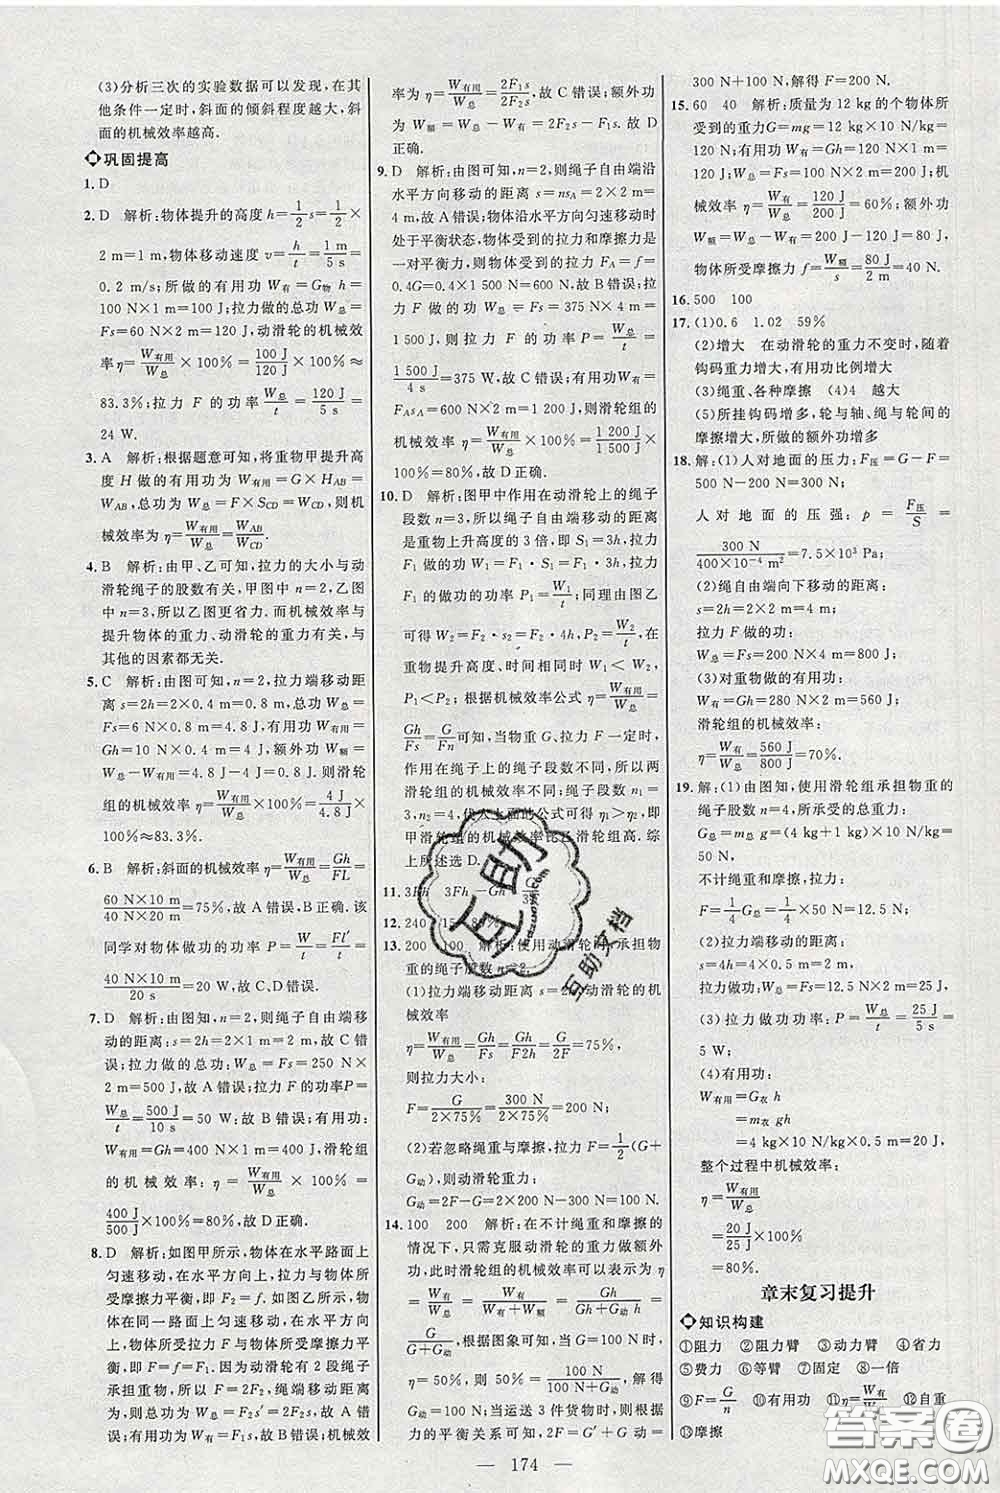 (3)分析三次的实验数据可以发现,在其
他条件一定时,斜面的倾斜程度越大,斜
面的机械效率越高.
巩固提高
1. D
2. D 解析:物体提升的高度 h=1/2 s=1/2×
2 m=1 m,物体移动速度 v=h/t=1 m/5 s=
0.2 m/s;所做的有用功 W有用=G物 h=
100 N×1 m=100 J;拉力做的总功 W总=
Fs=60 N×2 m=120 J,动滑轮的机械效
率 η=W有用/W总×100%=100 J/120 J×100%≈
83.3%;拉力 F 的功率=W总/t=120 J/5 s=
24 W.
3. A 解析:根据题意可知,将重物甲提升高
度 H 做的有用功为 W有用=G×H=
WAB,总功为 W总=F×SCD=WCD,则机
械效率为 η=W有用/W总=WAB/WCD.
4. B 解析:由甲、乙可知,拉力的大小与动
滑轮绳子的股数有关,甲图中 n=2,乙图
中 n=3,所以乙图更省力.而机械效率与
提升物体的重力、动滑轮的重力有关,与
其他的因素都无关.
5. C 解析:由图可知,n=2,拉力端移动距
离 s=2h=2×0.4 m=0.8 m,总功 W总=
Fs=6 N×0.8 m=4.8 J,有用功 W有用=
Gh=10 N×0.4 m=4 J,额外功 W额=
W总−W有用=4.8 J−4 J=0.8 J;则滑轮
组的机械效率 η=W有用/W总×100%=4 J/4.8 J×
100%≈83.3%.
6. B 解析:斜面的机械效率 η=W有用/W总=Gh/FL=
60 N×10 m/40 N×20 m=75%,故 A 错误,B 正确.该
同学对物体做功的功率 P=W/t=Fl′/t=
40 N×10 m/20 s=20 W,故 C、D 错误.
7. D 解析:由图知,n=2,则绳子自由端移
动的距离:s=2h=2×1 m=2 m,故 C 错
误;拉力做的总功:W总=Fs=250 N×
2 m=500 J,故 A 错误;拉力 F 的功率P=
W总/t=500 J/10 s=50 W:故 B 错误;有用功:
W有用=Gh=400 N×1 m=400 J,滑轮组
的机械效率:η=W有用/W总×100%=
400 J/500 J×100%=80%,故 D 正确.
8. D 解析:如图甲所示,物体在水平路面上
匀速移动,在水平方向上,拉力与物体所
受摩擦力平衡,即 F2=f.如图乙所示,物
体在同一路面上做匀速移动,在水平方向
上,物体所受拉力与物体所受摩擦力平
衡,即 F=f=F1.因为动滑轮有 2 段绳子
承担拉力,所以 s′=2s,绳端移动距离为
s,则总功为 W总=F2s′=2F2s,故 A、B 错
误;有用功为 W有用=F1s,所以机械效
率为 η=W有用/W总=2F1s/2F2s,故 C 错误;额外功
为 W额=W总−W有用=2F2s−F1s.故 D
正确.
9. D 解析:由图可知,n=2,则绳子自由端沿
水平方向移动的距离 s=nsA=2×2 m=
4 m,故 A 错误;物体沿水平方向匀速移动时
处于平衡状态,物体受到的拉力和摩擦力是
一对平衡力,则物体受到的拉力 FA=f=
0.4G=0.4×1 500 N=600 N,故 B 错误;拉
力 F 做的功 W总=Fs=375 N×4 m=
1 500 J,则拉力 F 的功率 P=W总/t=
1 500 J/4 s=375 W,故 C 错误;有用功W有用=
FAsA=600 N×2 m=1 200 J,则滑轮组的
机械效率 η=W有用/W总×100%=1 200 J/1 500 J×
100%=80%,故 D 正确.
10. D 解析:图甲中作用在动滑轮上的绳子
段数 n=3,所以绳子自由端移动的距离
是重物上升高度的 3 倍,即 S1=3h,拉力
F1 做的功 W1=F1·S1=F1·3h,拉力
F1 的做功的功率 P1=W1/t;同理由图乙
可得 W2=F2·s2=F2·4h,P2=W2/t,在
重物提升高度、时间相同时 W1<W2,
P1<P2;根据机械效率公式 η=W有用/W总=
Gh/Fs=G/Fn可知,当物重 G、拉力 F 一定时,
作用在绳子上的绳子段数不同,所以机
械效率不同,作用在绳子上的段数 n1=
3、n2=4,代入上面的公式可得 η1>η2,即
甲滑轮组的机械效率比乙滑轮组高.综
上所述选 D.
11. 3Fh 3Fh−Gh
12. 240
13. 200 100 解析:使用动滑轮承担物
重的绳子股数 n=2.
(1)拉力端移动距离 s=2h,动滑轮的机
械效率
η=W有用/W总=Gh/Fs=Gh/F2h=G/2F=75%,
则拉力大小:
F=G/2×75%=300 N/2×75%=200 N;
(2)若忽略绳重与摩擦,拉力 F=1/2(G+
G动),则动滑轮重力:
G动=2F−G=2×200 N−300 N=100 N.
14. 100 200 解析:在不计绳重和摩擦的
的情况下,只需克服动滑轮的重力做额外
功,此时滑轮组的机械效率可以表示为 η
=W有/W总=W有/W有+W额=Gh/Gh+G动h=
G/G+G动,根据图象可知,当 G=100 N 时,
η=50%,则η=G/G+G动=100 N/100 N+G动=
50%,当运送 3 件货物时,则根据
力的平衡关系可知,2F=G′+G动=
300 N+100 N,解得 F=200 N.
15. 60 40 解析:质量为 12 kg的个物体所
受到的重力G=mg=12 kg×10 N/kg=
120 N;有用功 W有=120 N×1 m=120 J;机
械效率 η=W有用/W总=120 J/200 J=60%;额外功
W额=W总−W有=200 J−120 J=80 J;
物体所受摩擦力 f=W额/s=80 J/2 m=40 N.
16. 500 100
17. (1)0.6 1.02 59%
(2)增大 在动滑轮的重力不变时,随着
钩码重力增大,有用功比例增大
(3)绳重、各种摩擦 (4)4 越大
(5)所挂钩码增多,轮与轴、绳与轮间的
摩擦增大,所做的额外功增多
18. 解:(1)人对地面的压力:F压=G−F=
500 N−200 N=300 N,
人对地面的压强:p=F压/S=
300 N/400×10⁻⁴ m²=7.5×10³ Pa;
(2)绳自由端向下移动的距离:
s=2h=2×2 m=4 m;
拉力 F 做的功:
W总=Fs=200 N×4 m=800 J;
(3)对重物做的有用功:
W有=Gh=280 N×2 m=560 J;
滑轮组的机械效率:
η=W有/W总=560 J/800 J=70%.
19. 解:(1)由图知,使用滑轮组承担物重的
绳子股数 n=4,所承受的总重力:
G总=m总 g=(4 kg+1 kg)×10 N/kg=
50 N,
不计绳重和摩擦,拉力:
F=1/4 G总=1/4×50 N=12.5 N;
(2)拉力端移动的距离:
s=4h=4×0.5 m=2 m,
拉力做功:W总=Fs=12.5 N×2 m=
25 J;
(3)拉力做功功率:P=W总/t=25 J/5 s=
5 W;
(4)有用功:
W有用=G衣 h
=m衣 gh
=4 kg×10 N/kg×0.5 m=20 J,
整个过程中机械效率:
η=W有用/W总
=20 J/25 J×100%
=80%.
章末复习提升
知识构建
①阻力 ②阻力臂 ③动力臂 ④省力
⑤费力 ⑥等臂 ⑦固定 ⑧一倍
⑨F=G/n ⑩有用功 ⑪η=W有用/W总 ⑫自重
⑬摩擦
— 174 —
互助
互助文档
答案圈
MXQE.COM